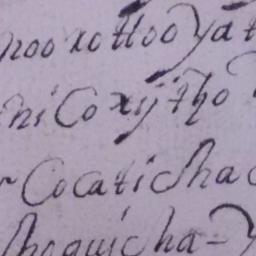 noo xotloo yat
ni Coxijtho
Cocaticha
hoquicha-y